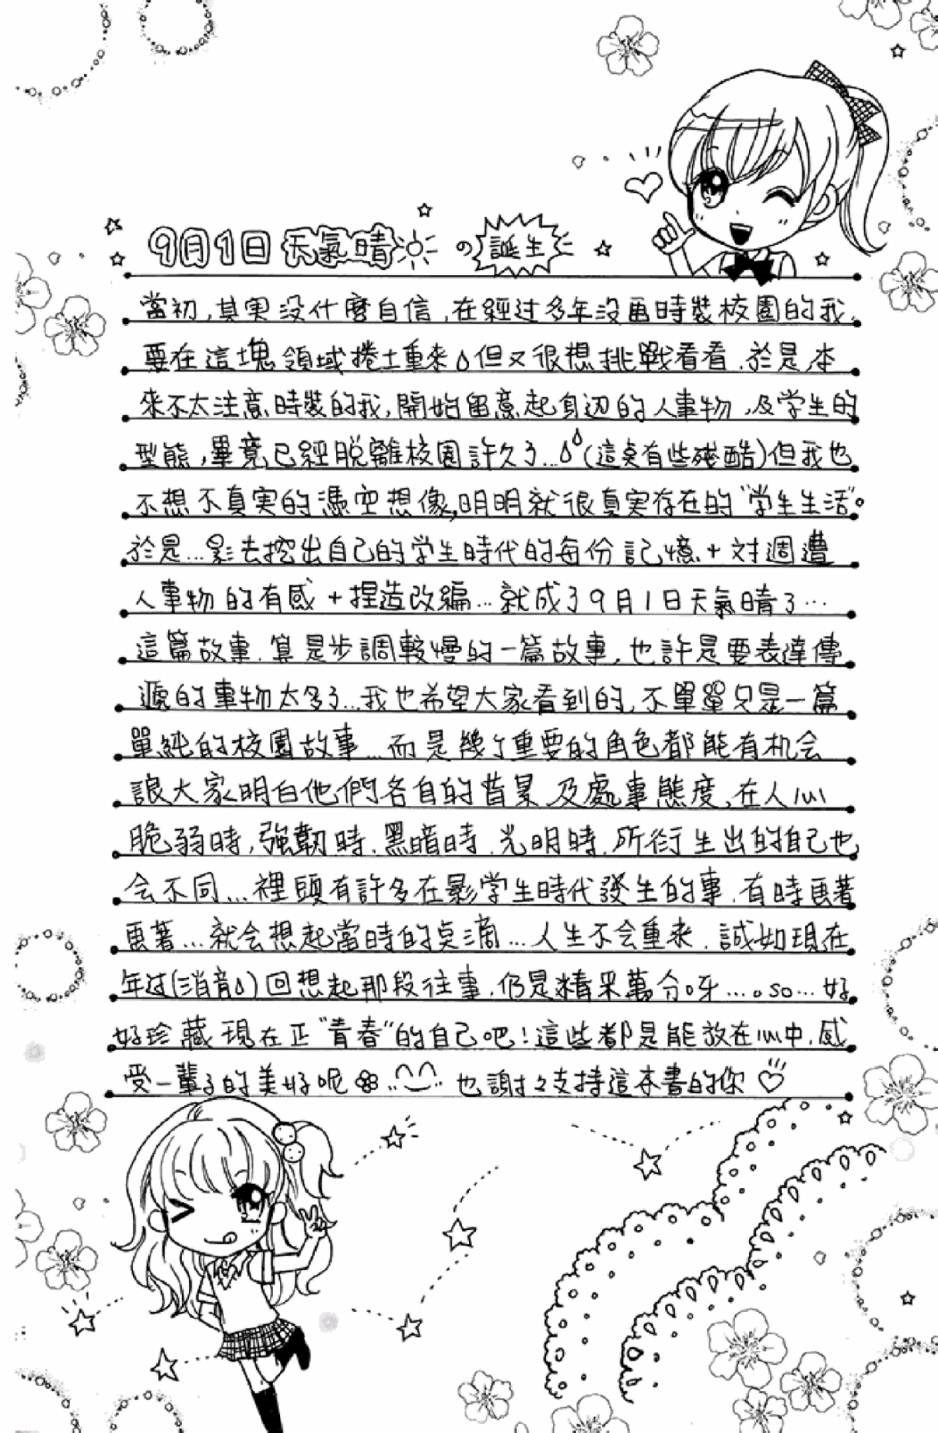 9月1日 天氣晴 の 誕生
當初,其実没什麼自信,在經过多年沒画時裝校園的我,
要在這塊領域捲土重來 但又很想挑戰看看.於是,本
來不太注意時裝的我,開始留意起身边的人事物,及学生的
型態,畢竟已經脫離校園許久了...(這真有些殘酷)但我也
不想不真実的憑空想像,明明就很真実存在的"学生生活"。
於是...我去挖出自己的学生時代的每份記憶+对週遭
人事物的有感+捏造改編...就成了9月1日天氣晴了...
這篇故事.算是步調較慢的一篇故事,也許是要表達傳
遞的事物太多了...我也希望大家看到的,不單單只是一篇
單純的校園故事...而是幾个重要的角色都能有机会
讓大家明白他們各自的背景,及處事態度,在人心
脆弱時,強韌時.黑暗時.光明時.所衍生出的自己也
会不同...裡頭有許多在我学生時代發生的事.有時画著
画著...就会想起當時的点滴...人生不会重来.誠如現在
年过(消音)回想起那段往事.仍是精采萬分呀....so...好
好珍藏現在正"青春"的自己吧!這些都是能放在心中,感
受一輩子的美好呢 也謝謝支持這本書的你♡